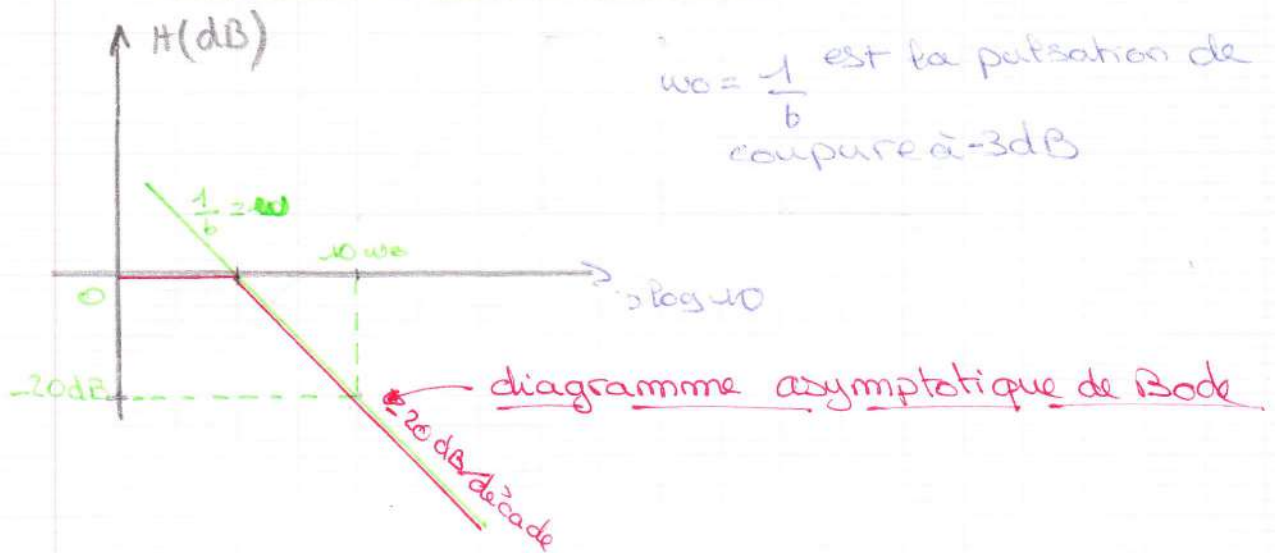 H(dB)
ω0 = 1/b est la pulsation de
coupure à -3dB
1/b = ω
10 ω0
0
log 10
-20dB
diagramme asymptotique de Bode
-20 dB décade